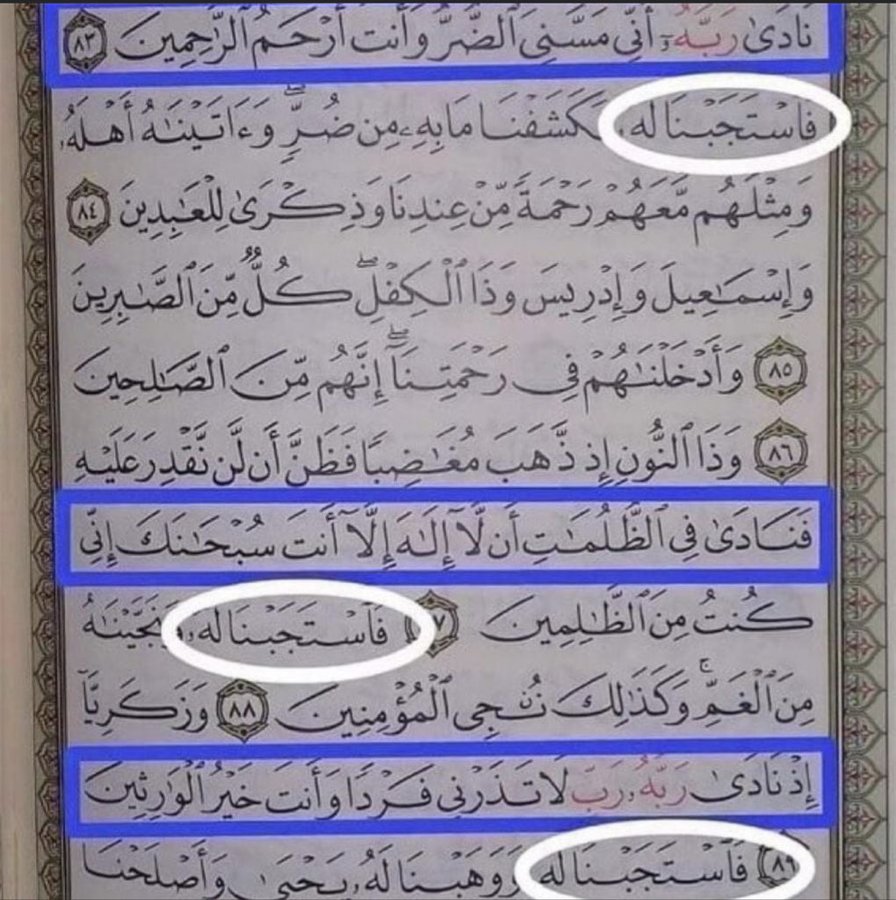 نَادَىٰ رَبَّهُۥٓ أَنِّى مَسَّنِىَ ٱلضُّرُّ وَأَنتَ أَرْحَمُ ٱلرَّٰحِمِينَ ٨٣
فَٱسْتَجَبْنَا لَهُۥ فَكَشَفْنَا مَا بِهِۦ مِن ضُرٍّۖ وَءَاتَيْنَٰهُ أَهْلَهُۥ
وَمِثْلَهُم مَّعَهُمْ رَحْمَةً مِّنْ عِندِنَا وَذِكْرَىٰ لِلْعَٰبِدِينَ ٨٤
وَإِسْمَٰعِيلَ وَإِدْرِيسَ وَذَا ٱلْكِفْلِۖ كُلٌّ مِّنَ ٱلصَّٰبِرِينَ
٨٥ وَأَدْخَلْنَٰهُمْ فِى رَحْمَتِنَآۖ إِنَّهُم مِّنَ ٱلصَّٰلِحِينَ
٨٦ وَذَا ٱلنُّونِ إِذ ذَّهَبَ مُغَٰضِبًا فَظَنَّ أَن لَّن نَّقْدِرَ عَلَيْهِ
فَنَادَىٰ فِى ٱلظُّلُمَٰتِ أَن لَّآ إِلَٰهَ إِلَّآ أَنتَ سُبْحَٰنَكَ إِنِّى
كُنتُ مِنَ ٱلظَّٰلِمِينَ ٨٧ فَٱسْتَجَبْنَا لَهُۥ وَنَجَّيْنَٰهُ
مِنَ ٱلْغَمِّۚ وَكَذَٰلِكَ نُۨجِى ٱلْمُؤْمِنِينَ ٨٨ وَزَكَرِيَّآ
إِذْ نَادَىٰ رَبَّهُۥ رَبِّ لَا تَذَرْنِى فَرْدًا وَأَنتَ خَيْرُ ٱلْوَٰرِثِينَ
٨٩ فَٱسْتَجَبْنَا لَهُۥ وَوَهَبْنَا لَهُۥ يَحْيَىٰ وَأَصْلَحْنَا